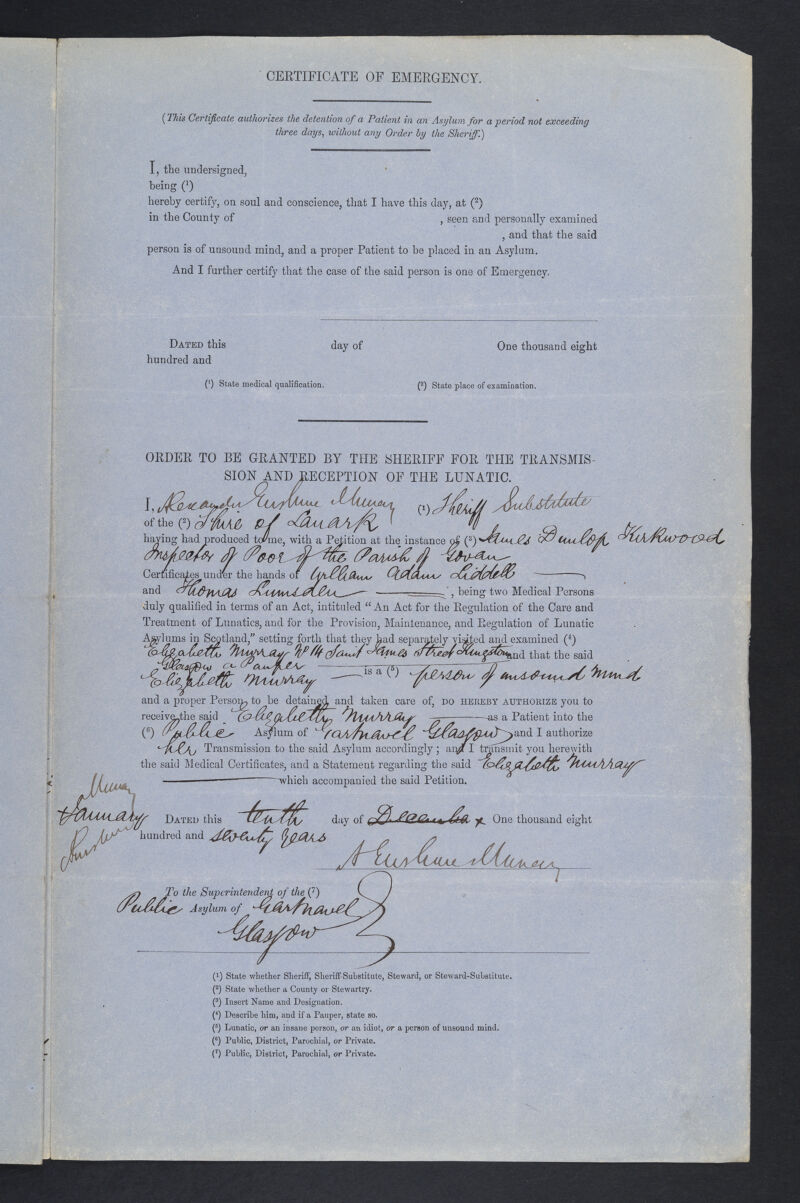 CERTIFICATE OF EMERGENCY.
(This Certificate authorizes the detention of a Patient in an Asylum for a period not exceeding
three days, without any Order by the Sheriff.)
I, the undersigned,
being (¹)
hereby certify, on soul and conscience, that I have this day, at (²)
in the County of , seen and personally examined
, and that the said
person is of unsound mind, and a proper Patient to be placed in an Asylum.
And I further certify that the case of the said person is one of Emergency.
DATED this day of One thousand eight
hundred and
(¹) State medical qualification. (²) State place of examination.
ORDER TO BE GRANTED BY THE SHERIFF FOR THE TRANSMIS-
SION AND RECEPTION OF THE LUNATIC.
I, Alexander Erskine Murray (¹) Sheriff Substitute
of the (²) Shire of Lanark
having had produced to me, with a Petition at the instance of (³) James Dunlop Kirkwood
Inspector of Poor of the Parish of Govan
Certificates under the hands of William Adam Liddell
and Thomas Lumsden , being two Medical Persons
duly qualified in terms of an Act, intituled "An Act for the Regulation of the Care and
Treatment of Lunatics, and for the Provision, Maintenance, and Regulation of Lunatic
Asylums in Scotland," setting forth that they had separately visited and examined (⁴)
Elizabeth Murray No 14 Saint James Street Kingston and that the said
Glasgow a Pauper
Elizabeth Murray is a (⁵) person of unsound mind
and a proper Person to be detained and taken care of, DO HEREBY AUTHORIZE you to
receive the said Elizabeth Murray as a Patient into the
(⁶) Public Asylum of Gartnavel Glasgow and I authorize
her Transmission to the said Asylum accordingly; and I transmit you herewith
the said Medical Certificates, and a Statement regarding the said Elizabeth Murray
which accompanied the said Petition.
Murray
January DATED this tenth day of December x One thousand eight
Erskine hundred and seventy years
A Erskine Murray
To the Superintendent of the (⁷)
Public Asylum of Gartnavel
Glasgow
(¹) State whether Sheriff, Sheriff-Substitute, Steward, or Steward-Substitute.
(²) State whether a County or Stewartry.
(³) Insert Name and Designation.
(⁴) Describe him, and if a Pauper, state so.
(⁵) Lunatic, or an insane person, or an idiot, or a person of unsound mind.
(⁶) Public, District, Parochial, or Private.
(⁷) Public, District, Parochial, or Private.